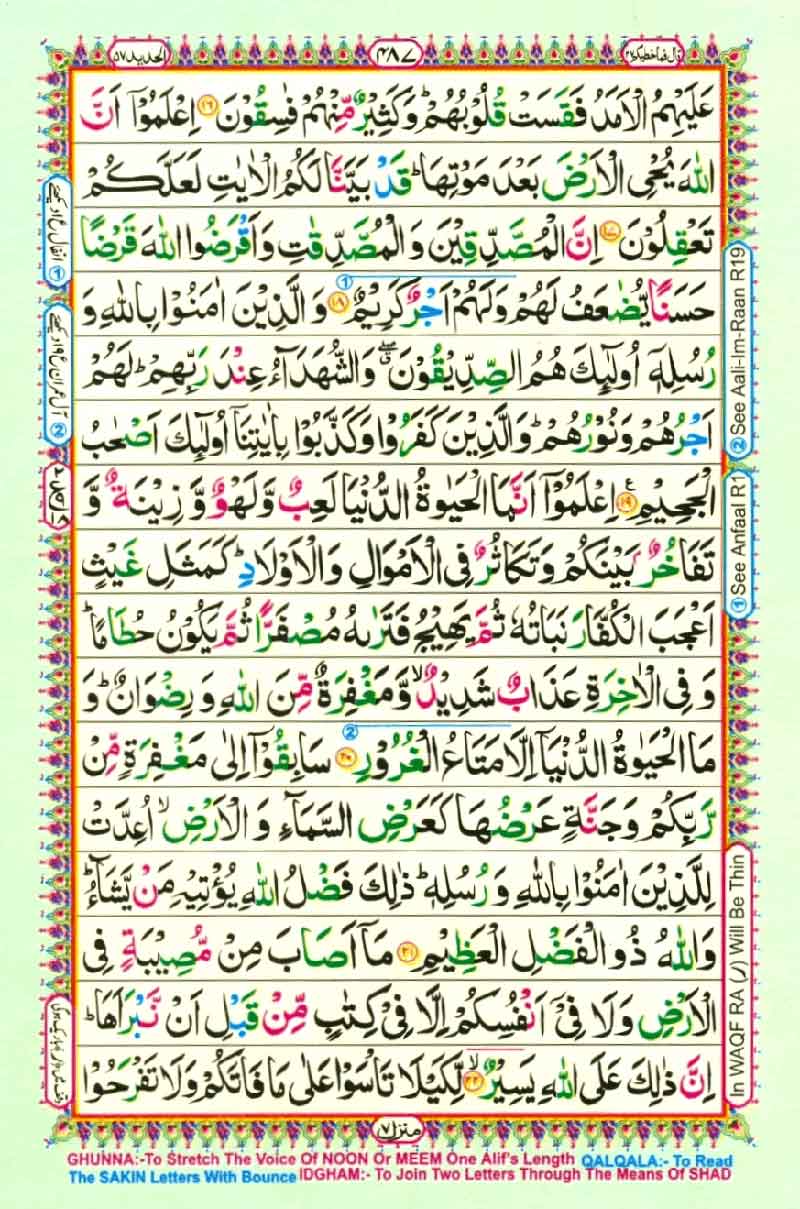 قال فما خطبكم ٢٧
٤٨٧
الحديد ٥٧
عَلَيْهِمُ الْاَمَدُ فَقَسَتْ قُلُوْبُهُمْ ؕ وَكَثِيْرٌ مِّنْهُمْ فٰسِقُوْنَ ۝١٦ اِعْلَمُوْۤا اَنَّ
اللّٰهَ يُحْیِ الْاَرْضَ بَعْدَ مَوْتِهَا ؕ قَدْ بَيَّنَّا لَكُمُ الْاٰيٰتِ لَعَلَّكُمْ
تَعْقِلُوْنَ ۝١٧ اِنَّ الْمُصَّدِّقِيْنَ وَ الْمُصَّدِّقٰتِ وَ اَقْرَضُوا اللّٰهَ قَرْضًا
حَسَنًا يُّضٰعَفُ لَهُمْ وَلَهُمْ اَجْرٌ كَرِيْمٌ ۝١٨ وَ الَّذِيْنَ اٰمَنُوْا بِاللّٰهِ وَ
رُسُلِهٖۤ اُولٰٓئِكَ هُمُ الصِّدِّيْقُوْنَ ۖۗ وَالشُّهَدَآءُ عِنْدَ رَبِّهِمْ ؕ لَهُمْ
اَجْرُهُمْ وَنُوْرُهُمْ ؕ وَالَّذِيْنَ كَفَرُوْا وَكَذَّبُوْا بِاٰيٰتِنَاۤ اُولٰٓئِكَ اَصْحٰبُ
الْجَحِيْمِ ۝١٩ اِعْلَمُوْۤا اَنَّمَا الْحَيٰوةُ الدُّنْيَا لَعِبٌ وَّ لَهْوٌ وَّ زِيْنَةٌ وَّ
تَفَاخُرٌۢ بَيْنَكُمْ وَ تَكَاثُرٌ فِی الْاَمْوَالِ وَ الْاَوْلَادِ ؕ كَمَثَلِ غَيْثٍ
اَعْجَبَ الْكُفَّارَ نَبَاتُهٗ ثُمَّ يَهِيْجُ فَتَرٰىهُ مُصْفَرًّا ثُمَّ يَكُوْنُ حُطَامًا ؕ
وَ فِی الْاٰخِرَةِ عَذَابٌ شَدِيْدٌ ۙ وَّ مَغْفِرَةٌ مِّنَ اللّٰهِ وَ رِضْوَانٌ ؕ وَ
مَا الْحَيٰوةُ الدُّنْيَاۤ اِلَّا مَتَاعُ الْغُرُوْرِ ۝٢٠ سَابِقُوْۤا اِلٰی مَغْفِرَةٍ مِّنْ
رَّبِّكُمْ وَ جَنَّةٍ عَرْضُهَا كَعَرْضِ السَّمَآءِ وَ الْاَرْضِ ۙ اُعِدَّتْ
لِلَّذِيْنَ اٰمَنُوْا بِاللّٰهِ وَ رُسُلِهٖ ؕ ذٰلِكَ فَضْلُ اللّٰهِ يُؤْتِيْهِ مَنْ يَّشَآءُ ؕ
وَاللّٰهُ ذُو الْفَضْلِ الْعَظِيْمِ ۝٢١ مَاۤ اَصَابَ مِنْ مُّصِيْبَةٍ فِی
الْاَرْضِ وَ لَا فِیْۤ اَنْفُسِكُمْ اِلَّا فِیْ كِتٰبٍ مِّنْ قَبْلِ اَنْ نَّبْرَاَهَا ؕ
اِنَّ ذٰلِكَ عَلَی اللّٰهِ يَسِيْرٌ ۝٢٢ۙ لِّكَيْلَا تَاْسَوْا عَلٰی مَا فَاتَكُمْ وَلَا تَفْرَحُوْا
② See Aali-Im-Raan R19
① See Anfaal R1
In WAQF RA (ر) Will Be Thin
منزل ٧
GHUNNA:-To Stretch The Voice Of NOON Or MEEM One Alif's Length QALQALA:- To Read
The SAKIN Letters With Bounce IDGHAM:- To Join Two Letters Through The Means Of SHAD